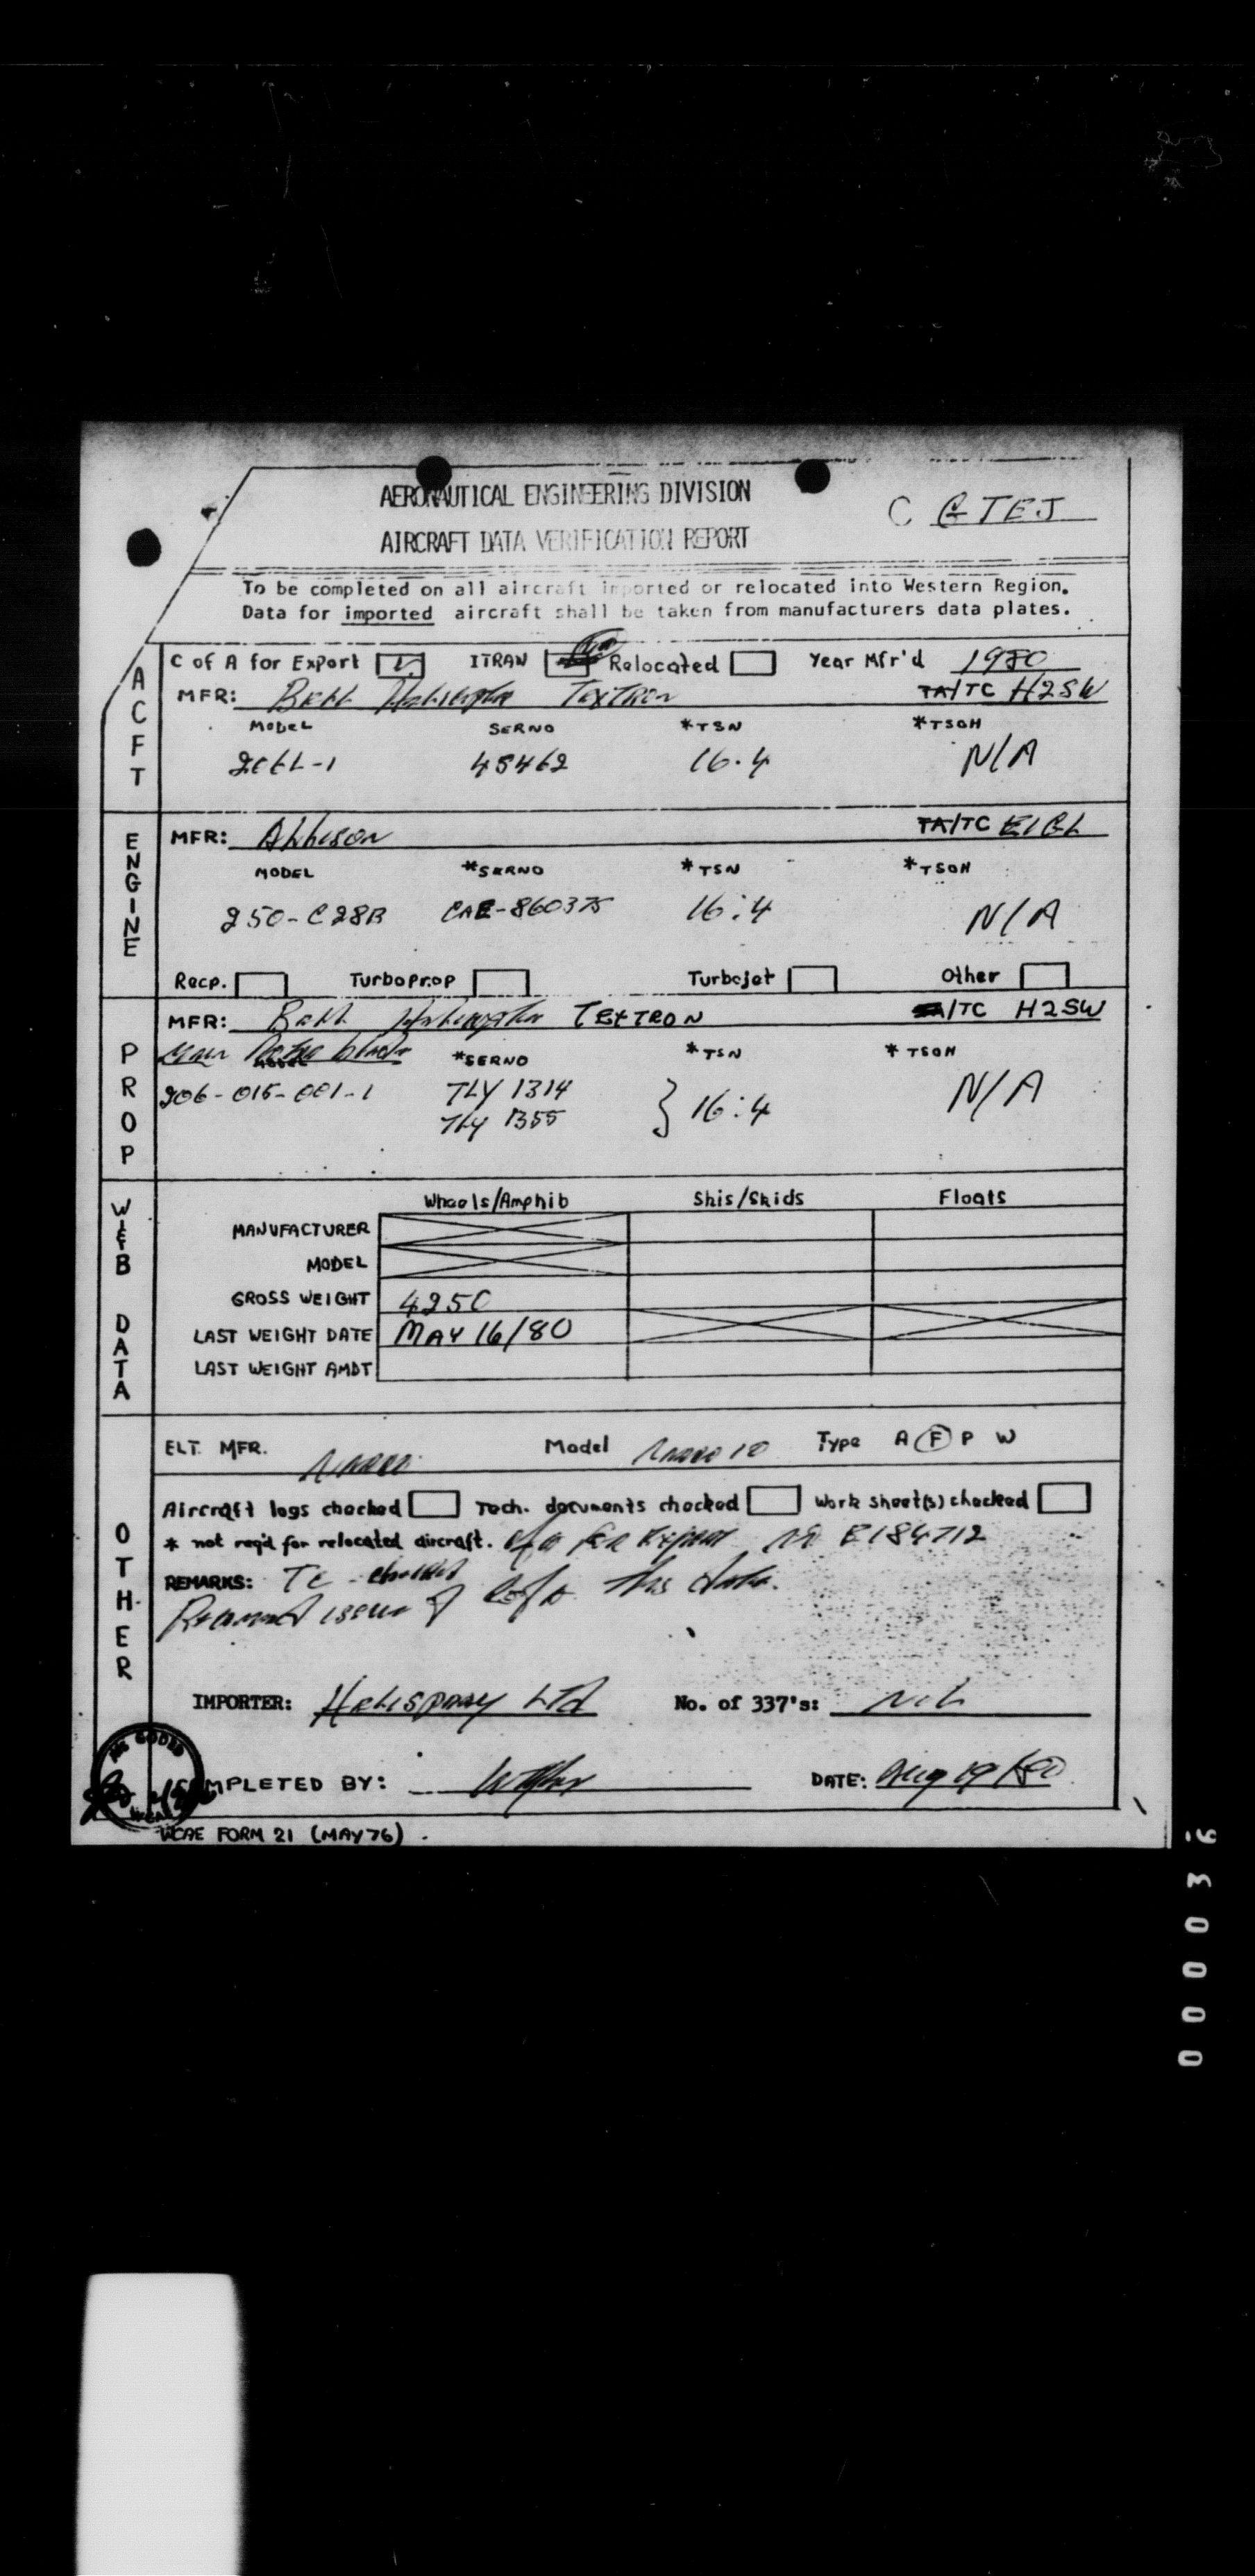 AERONAUTICAL ENGINEERING DIVISION
C GTEJ
AIRCRAFT DATA VERIFICATION REPORT
To be completed on all aircraft imported or relocated into Western Region.
Data for imported aircraft shall be taken from manufacturers data plates.
ACFT
C of A for Export ITRAN Relocated Year Mfr'd 1980
MFR: Bell Helicopter Textron TA/TC H2SW
MODEL SERNO *TSN *TSOH
206L-1 45462 16.4 N/A
ENGINE
MFR: Allison TA/TC E1GL
MODEL *SERNO *TSN *TSOH
250-C28B CAE-860375 16:4 N/A
Recp. Turboprop Turbojet Other
PROP
MFR: Bell Helicopter TEXTRON TA/TC H2SW
Main Rotor blade MODEL *SERNO *TSN *TSOH
206-015-001-1 TLY 1314 } 16:4 N/A
TLY 1355
W&B DATA
Wheels/Amphib Skis/Skids Floats
MANUFACTURER
MODEL
GROSS WEIGHT 4250
LAST WEIGHT DATE MAY 16/80
LAST WEIGHT AMDT
OTHER
ELT. MFR. Narco Model Narco 10 Type A F P W
Aircraft logs checked Tech. documents checked Work sheet(s) checked
* not req'd for relocated aircraft. C of A for Export E184712
REMARKS: TC - checked
issue of C of A this date.
IMPORTER: Helispray Ltd No. of 337's: Nil
COMPLETED BY: DATE: Aug 19/80
WCAE FORM 21 (MAY 76)
000036